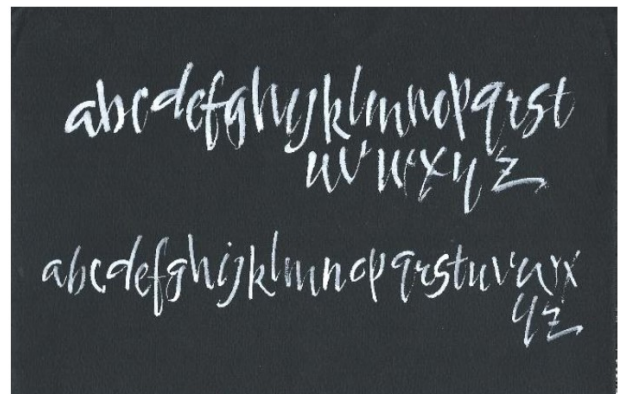 abcdefghijklmnopqrst
uvwxyz
abcdefghijklmnopqrstuvwx
yz